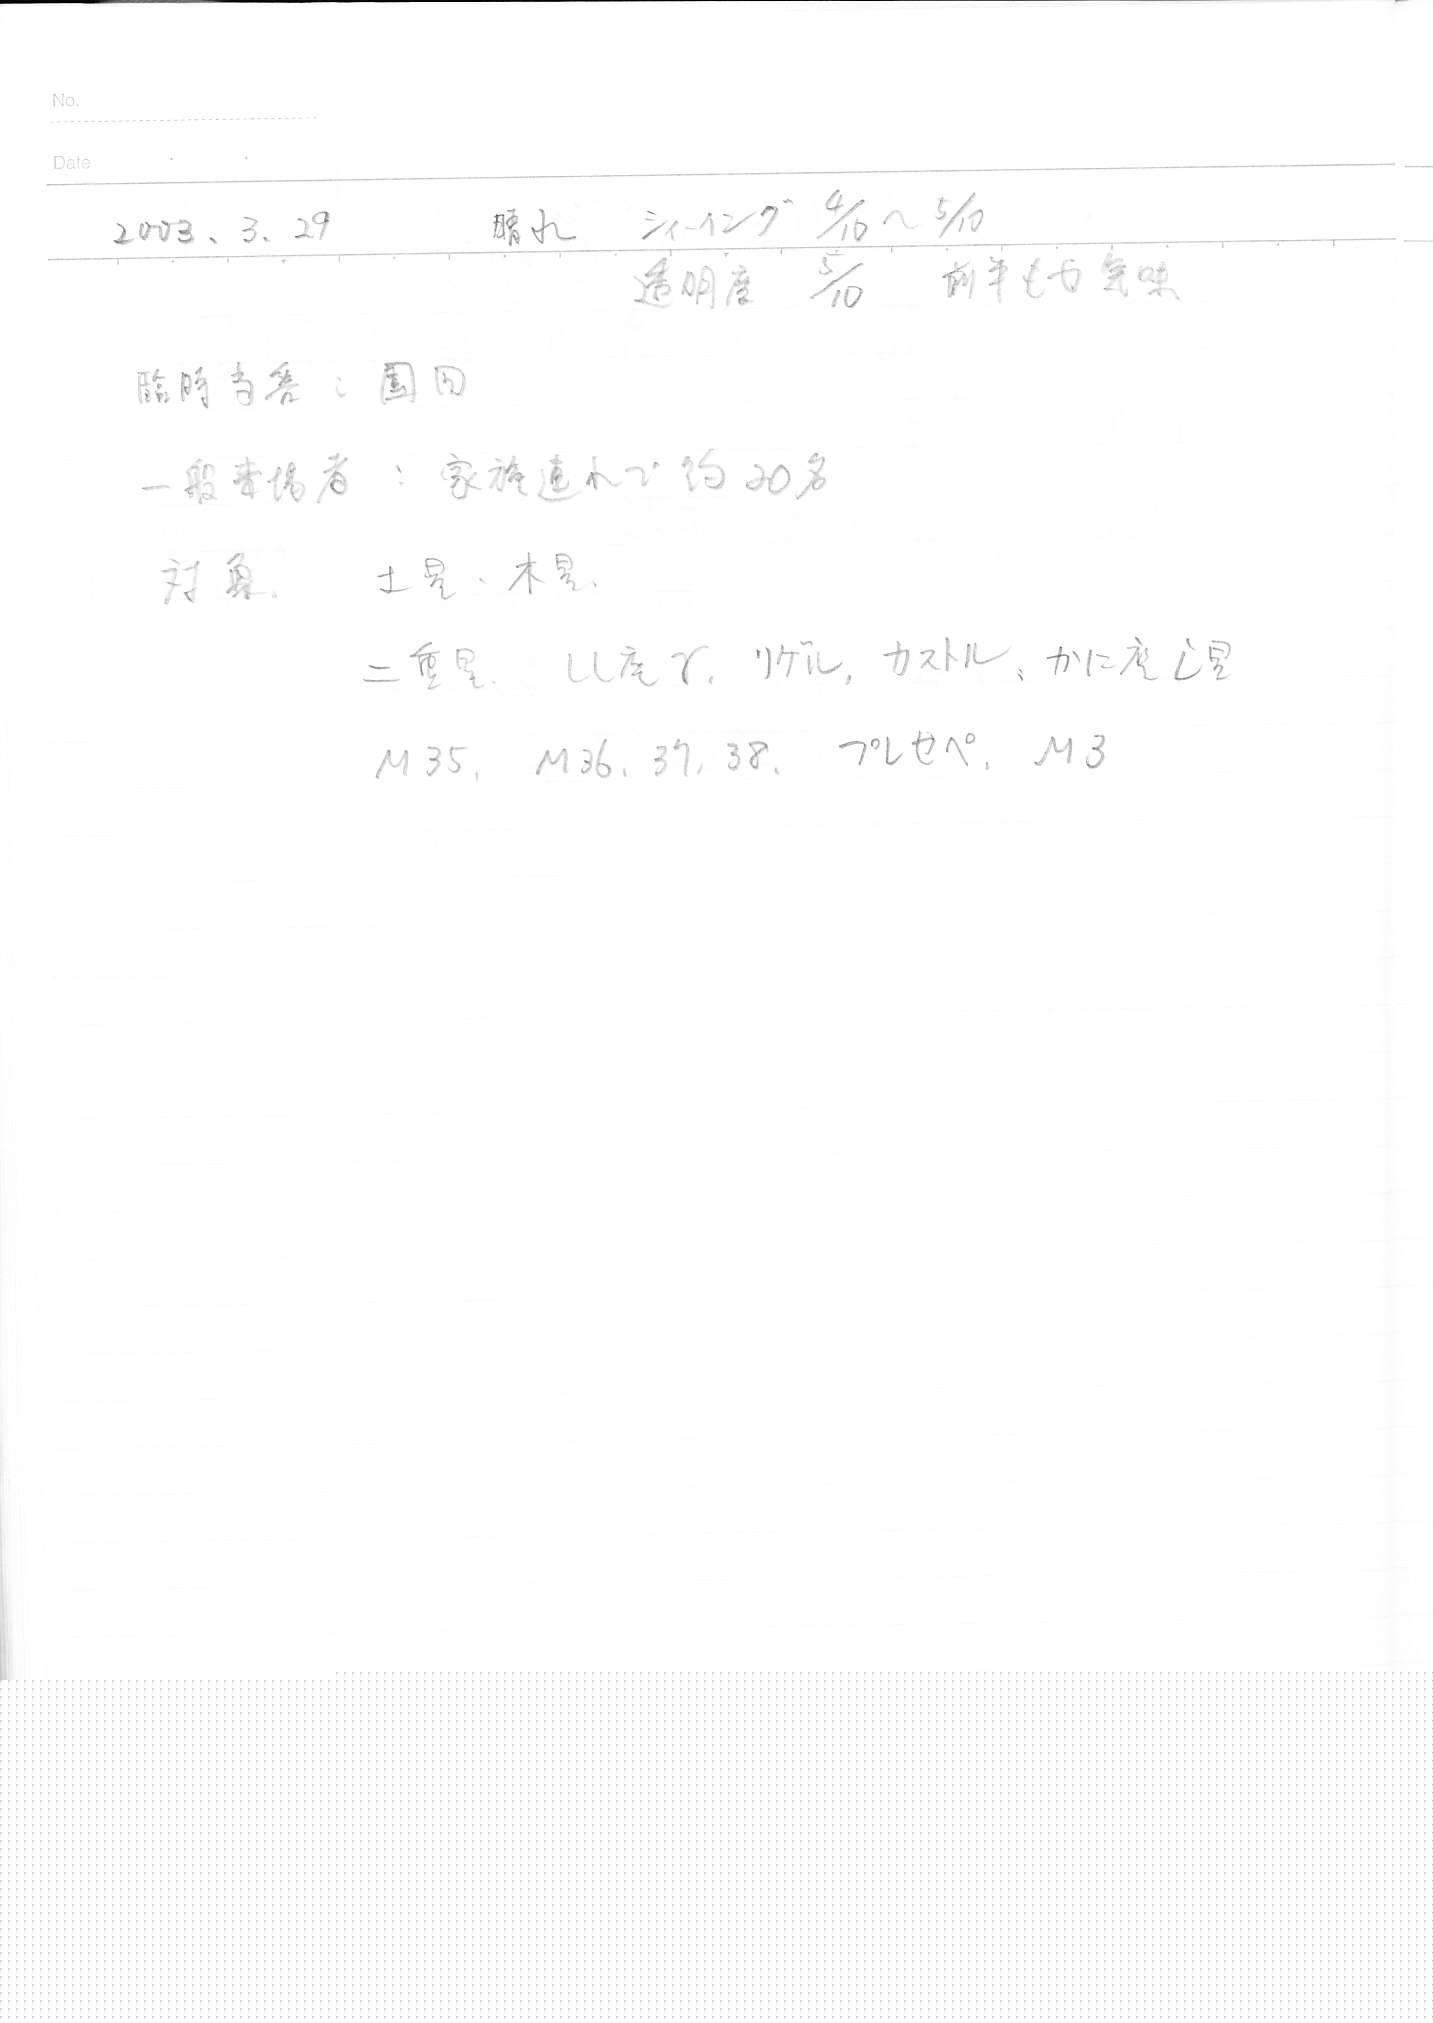 No.
Date
2003. 3. 29 晴れ シーイング 4/10〜5/10
透明度 5/10 前半もや気味
臨時当番: 園田
一般来場者: 家族連れで約20名
対象. 土星、木星、
二重星. しし座γ. リゲル, カストル、かに座ι星
M35. M36. 37. 38. プレセペ. M3